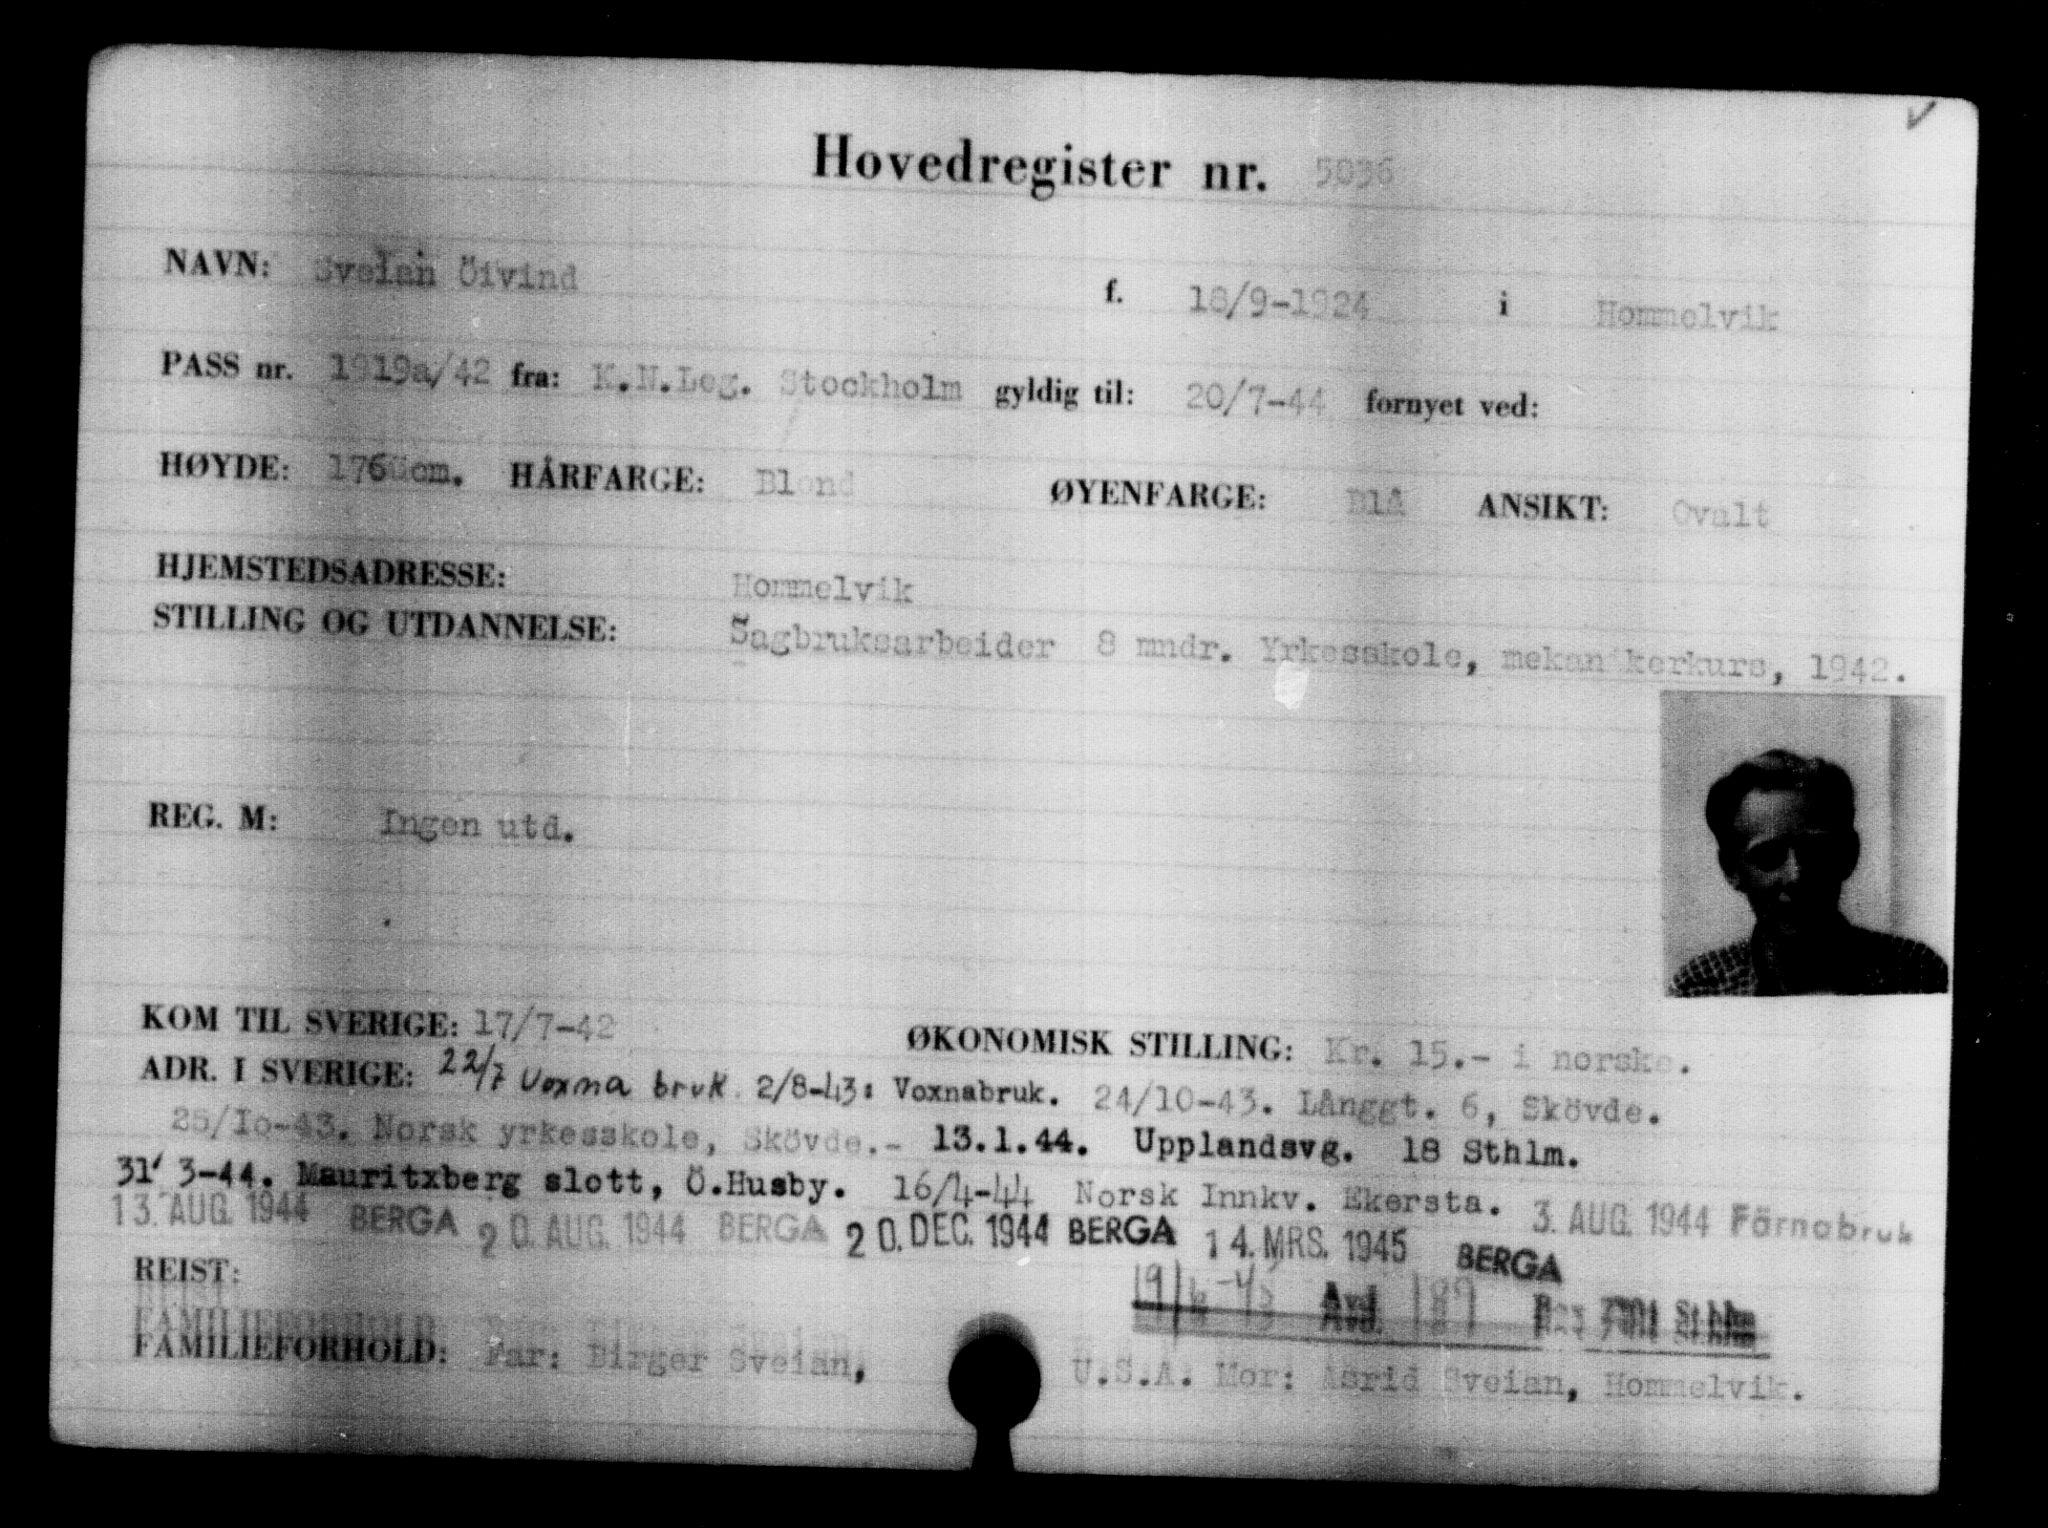 Hovedregister nr. 5036
NAVN: Sveian Öivind f. 18/9-1924 i Hommelvik
PASS nr. 1919a/42 fra: K.N.Leg. Stockholm gyldig til: 20/7-44 fornyet ved:
HØYDE: 176 cm. HÅRFARGE: Blond ØYENFARGE: Blå ANSIKT: Ovalt
HJEMSTEDSADRESSE: Hommelvik
STILLING OG UTDANNELSE: Sagbruksarbeider 8 mndr. Yrkesskole, mekanikerkurs, 1942.
REG. M: Ingen utd.
KOM TIL SVERIGE: 17/7-42 ØKONOMISK STILLING: Kr. 15.- i norske.
ADR. I SVERIGE: 22/7 Voxna bruk. 2/8-43: Voxnabruk. 24/10-43. Långgt. 6, Skövde.
25/Io-43. Norsk yrkesskole, Skövde.- 13.1.44. Upplandsvg. 18 Sthlm.
31/3-44. Mauritxberg slott, Ö.Husby. 16/4-44 Norsk Innkv. Ekersta. 3. AUG. 1944 Färnabruk
13. AUG. 1944 BERGA 20. AUG. 1944 BERGA 20. DEC. 1944 BERGA 14. MRS. 1945 BERGA
REIST: Avd. Sthlm
FAMILIEFORHOLD: Far: Birger Sveian, U.S.A. Mor: Astrid Sveian, Hommelvik.